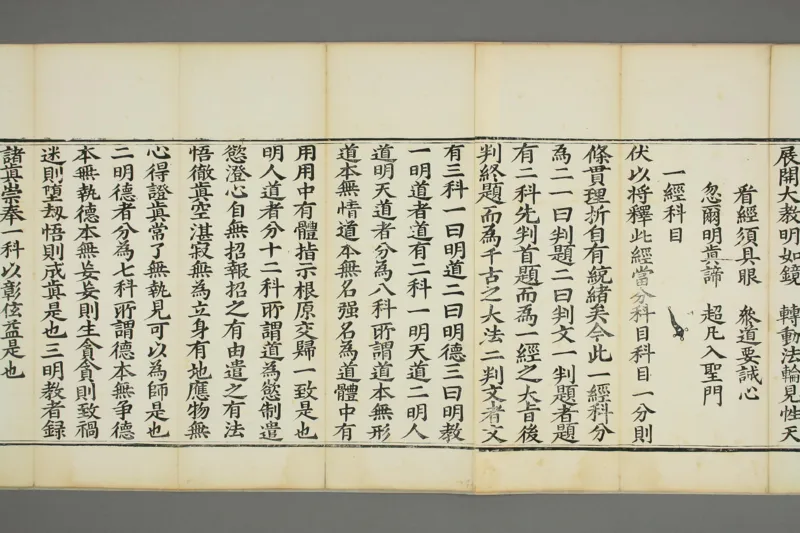 展開大教明如鏡 轉動法輪見性天
看經須具眼 參道要誠心
忽爾明眞諦 超凡入聖門
一經科目
伏以將釋此經當分科目科目一分則
條貫理折自有統緒矣今此一經科分
為二一曰判題二曰判文一判題者題
有二科先判首題而為一經之大吉後
判終題而為千古之大法二判文者文
有三科一曰明道二曰明德三曰明教
一明道者道有二科一明天道二明人
道明天道者分為八科所謂道本無形
道本無情道本無名强名為道體中有
用用中有體指示根原交歸一致是也
明人道者分十二科所謂道為慾制遣
慾澄心自無招報招之有由遣之有法
悟徹眞空湛寂無為立身有地應物無
心得證眞常了無執見可以為師是也
二明德者分為七科所謂德本無爭德
本無執德本無妄妄則生貪貪則致禍
迷則墮刼悟則成眞是也三明教者録
諸眞崇奉一科以彰伭益是也